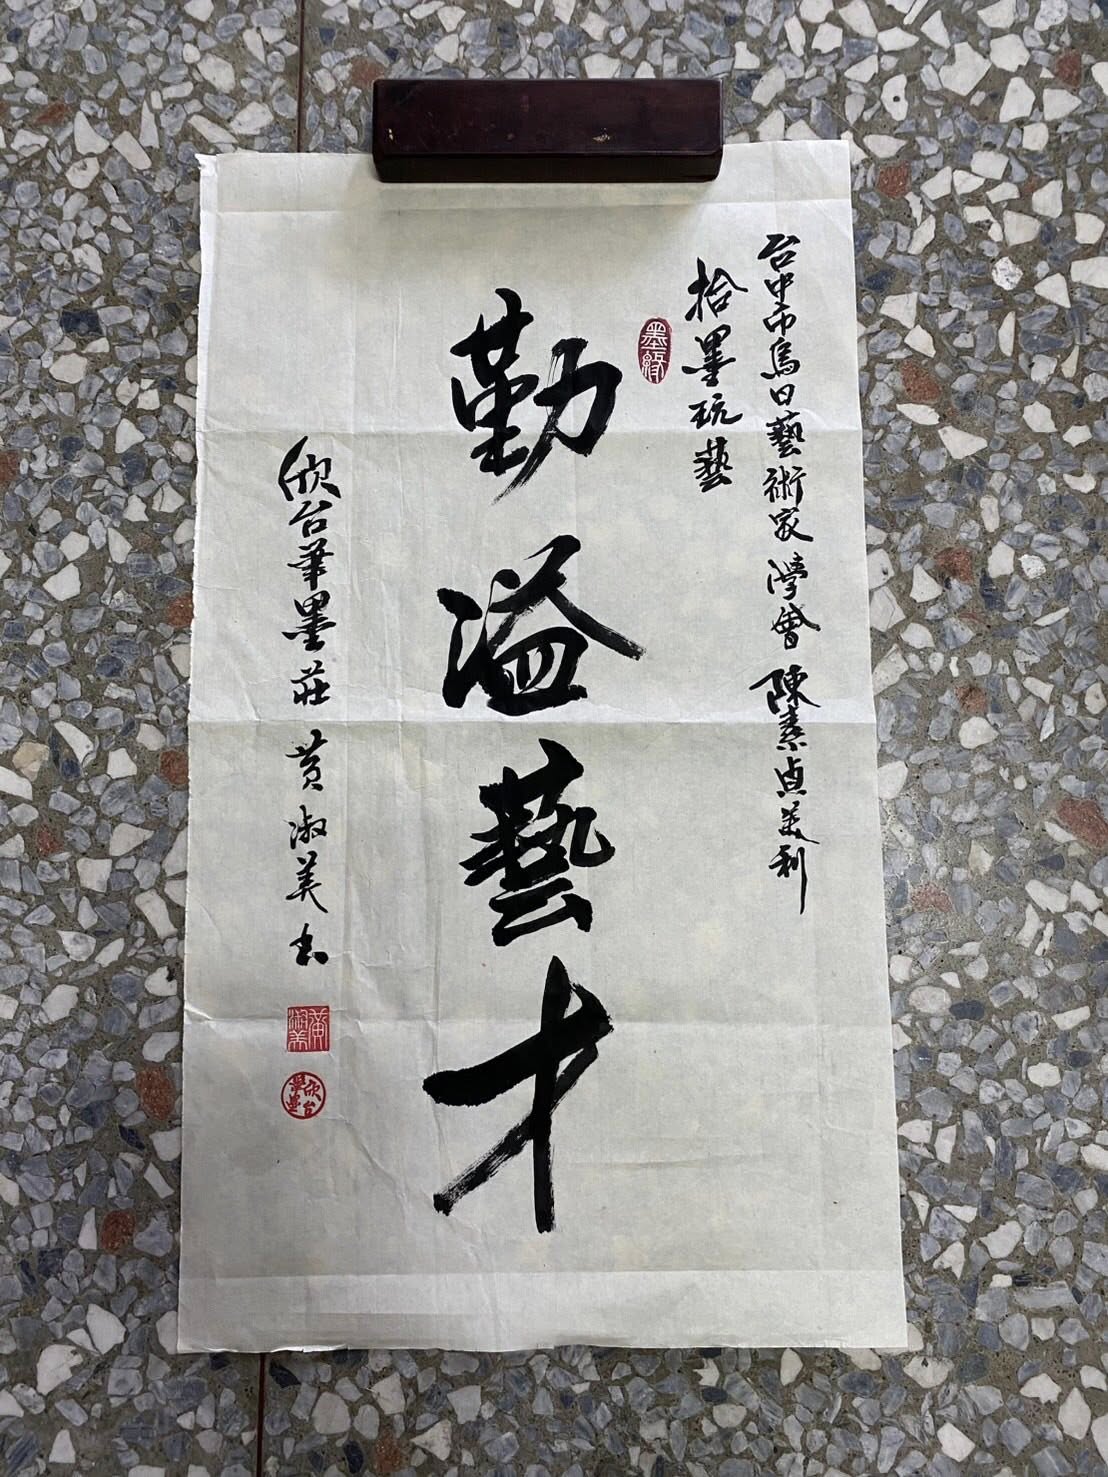 台中市烏日藝術家學會 陳素貞美利
拾墨玩藝
墨緣
勤溢藝才
欣台華墨莊 黃淑美书
黃淑美
欣台